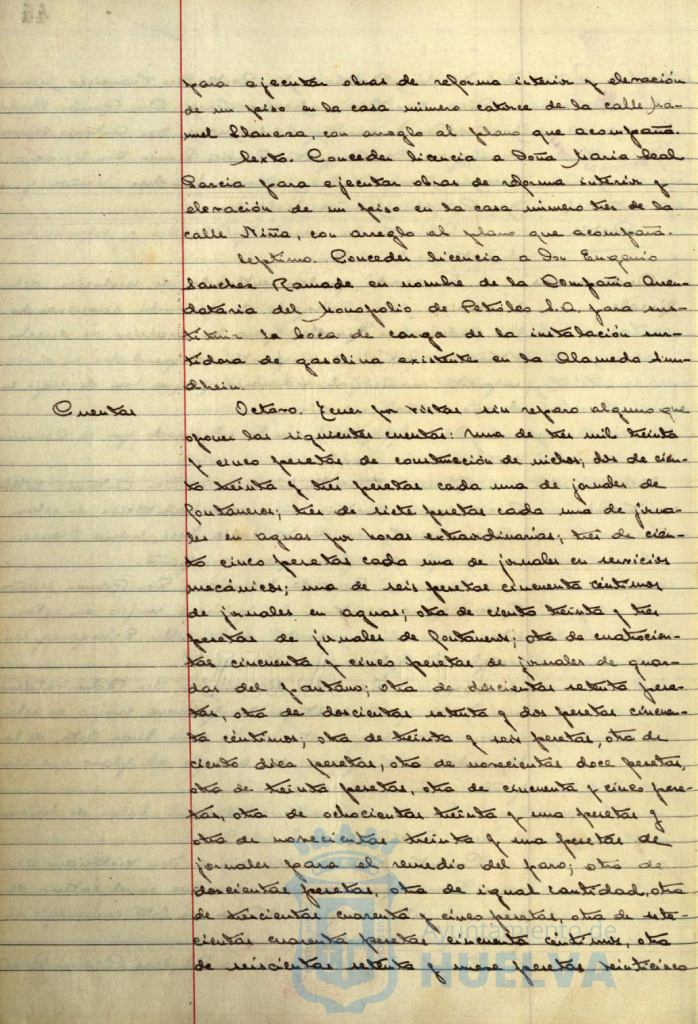 para ejecutar obras de reforma interior y elevación
de un piso en la casa número catorce de la calle Ma-
nuel Llaneza, con arreglo al plano que acompaña.
Sexto. Conceder licencia a Doña María Leal
García para ejecutar obras de reforma interior y
elevación de un piso en la casa número tres de la
calle Niña, con arreglo al plano que acompaña.
Septimo. Conceder licencia a Don Eugenio
Sanchez Ramade en nombre de la Compañía Arren-
dataria del Monopolio de Petróleos S.A. para sus-
tituir la boca de carga de la instalación sur-
tidora de gasolina existente en la Alameda Sun-
dheim.
Cuentas
Octavo. Tener por vistas sin reparo alguno que
oponer las siguientes cuentas: una de tres mil treinta
y cinco pesetas de construcción de nichos; dos de cien-
to treinta y tres pesetas cada una de jornales de
fontaneros; tres de siete pesetas cada una de jorna-
les en aguas por horas extraordinarias; tres de cien-
to cinco pesetas cada una de jornales en servicios
mecánicos; una de seis pesetas cincuenta céntimos
de jornales en aguas; otra de ciento treinta y tres
pesetas de jornales de fontaneros; otra de cuatrocien-
tas cincuenta y cinco pesetas de jornales de guar-
das del pantano; otra de doscientas setenta pese-
tas, otra de doscientas setenta y dos pesetas cincuen-
ta céntimos; otra de treinta y seis pesetas, otra de
ciento diez pesetas, otra de novecientas doce pesetas,
otra de treinta pesetas, otra de cincuenta y cinco pese-
tas, otra de ochocientas treinta y una pesetas y
otra de novecientas treinta y una pesetas de
jornales para el remedio del paro; otra de
doscientas pesetas, otra de igual cantidad, otra
de trescientas cuarenta y cinco pesetas, otra de sete-
cientas cuarenta pesetas cincuenta céntimos, otra
de seiscientas setenta y nueve pesetas veinticinco
Ayuntamiento de
HUELVA